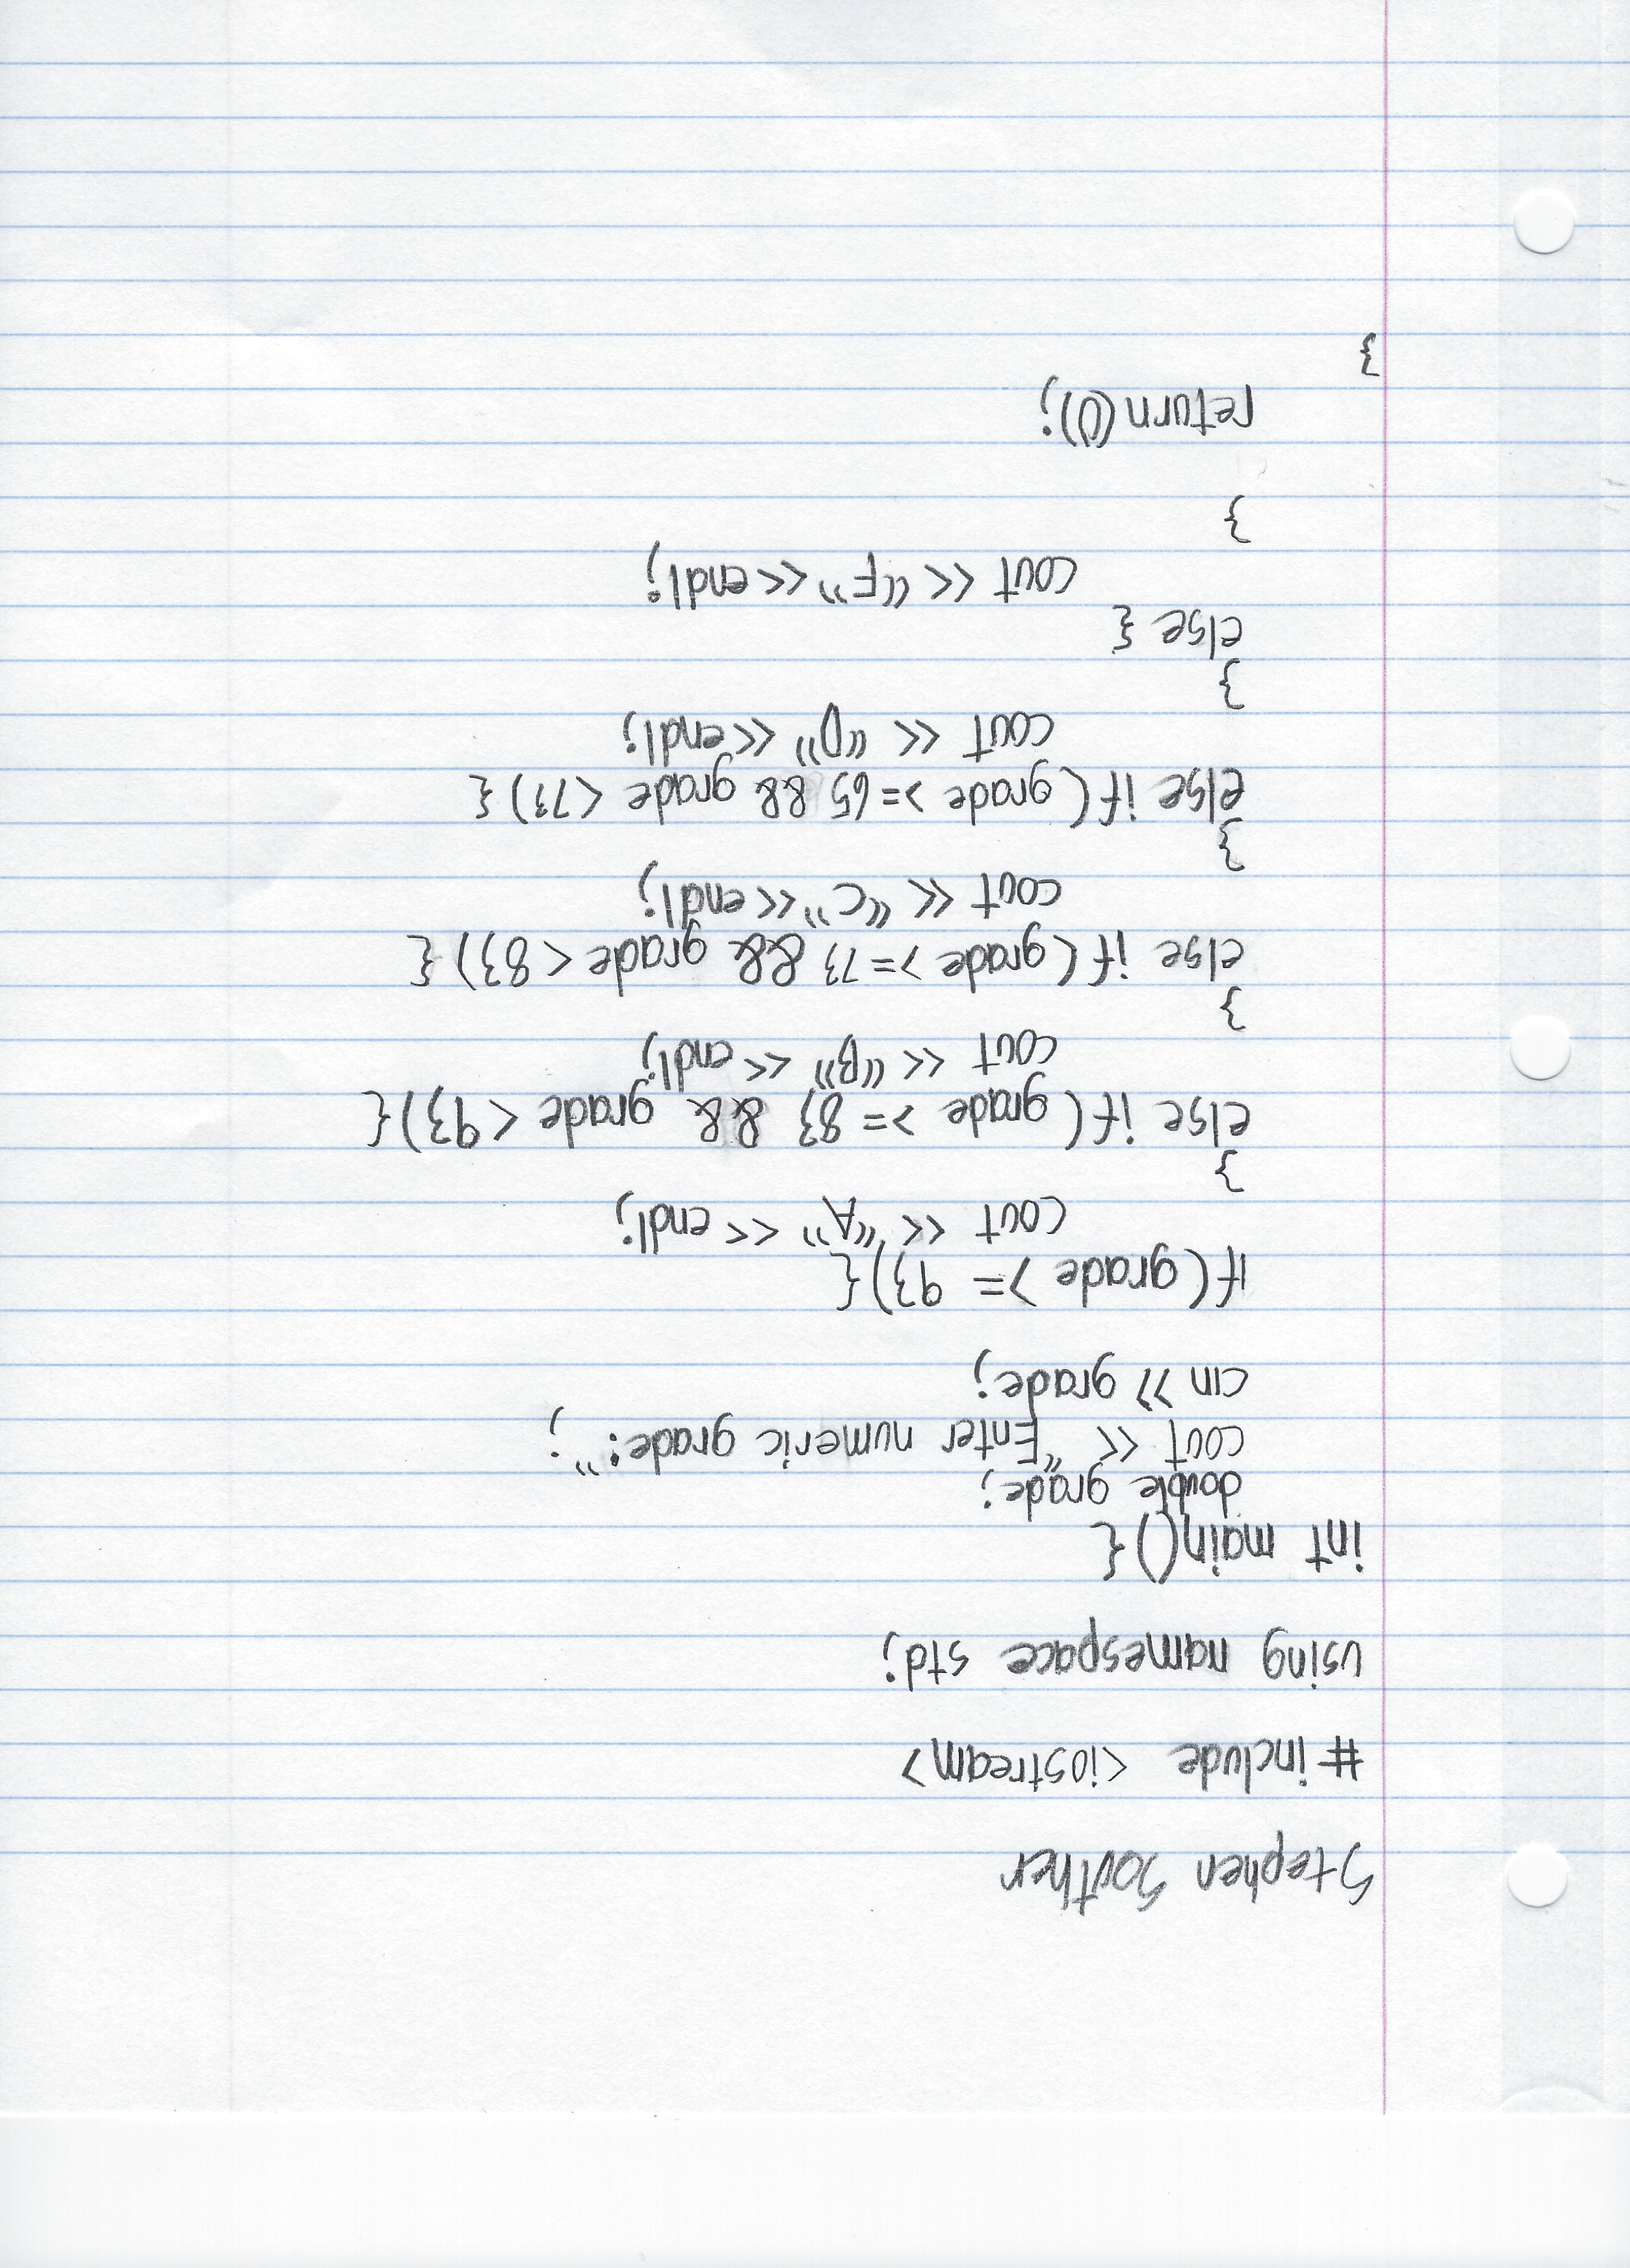 Stephen Souther
#include <iostream>
using namespace std;
int main(){
double grade;
cout << "Enter numeric grade:";
cin >> grade;
if(grade >= 93){
cout << "A" << endl;
}
else if(grade >= 83 && grade < 93){
cout << "B" << endl;
}
else if(grade >= 73 && grade < 83){
cout << "C" << endl;
}
else if(grade >= 65 && grade < 73){
cout << "D" << endl;
}
else {
cout << "F" << endl;
}
return(0);
}